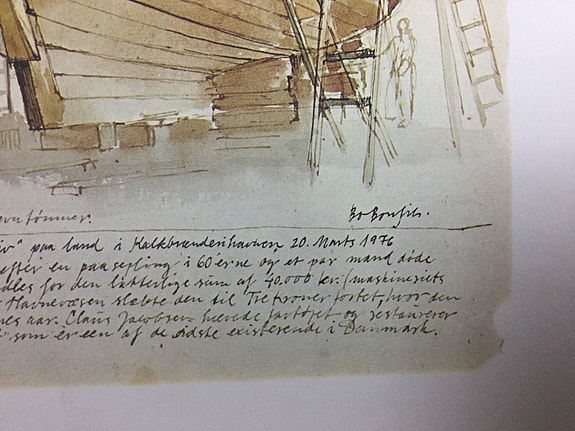 Bo Bonfils.
" paa land i Kalkbrænderihavnen 20. Marts 1976
efter en paasejling i 60'erne og et par mand døde
for den latterlige sum af 40.000 kr. (maskineriets
Havnevæsen slæbte den til Trekroner fortet, hvor den
aar. Claus Jacobsen hævede fartøjet og restaurerer
som er een af de sidste existerende i Danmark.